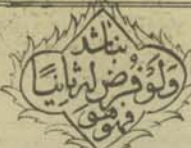 وَلَوْ فُرِضَ لَهُ ثَانِيًا
فهو هو